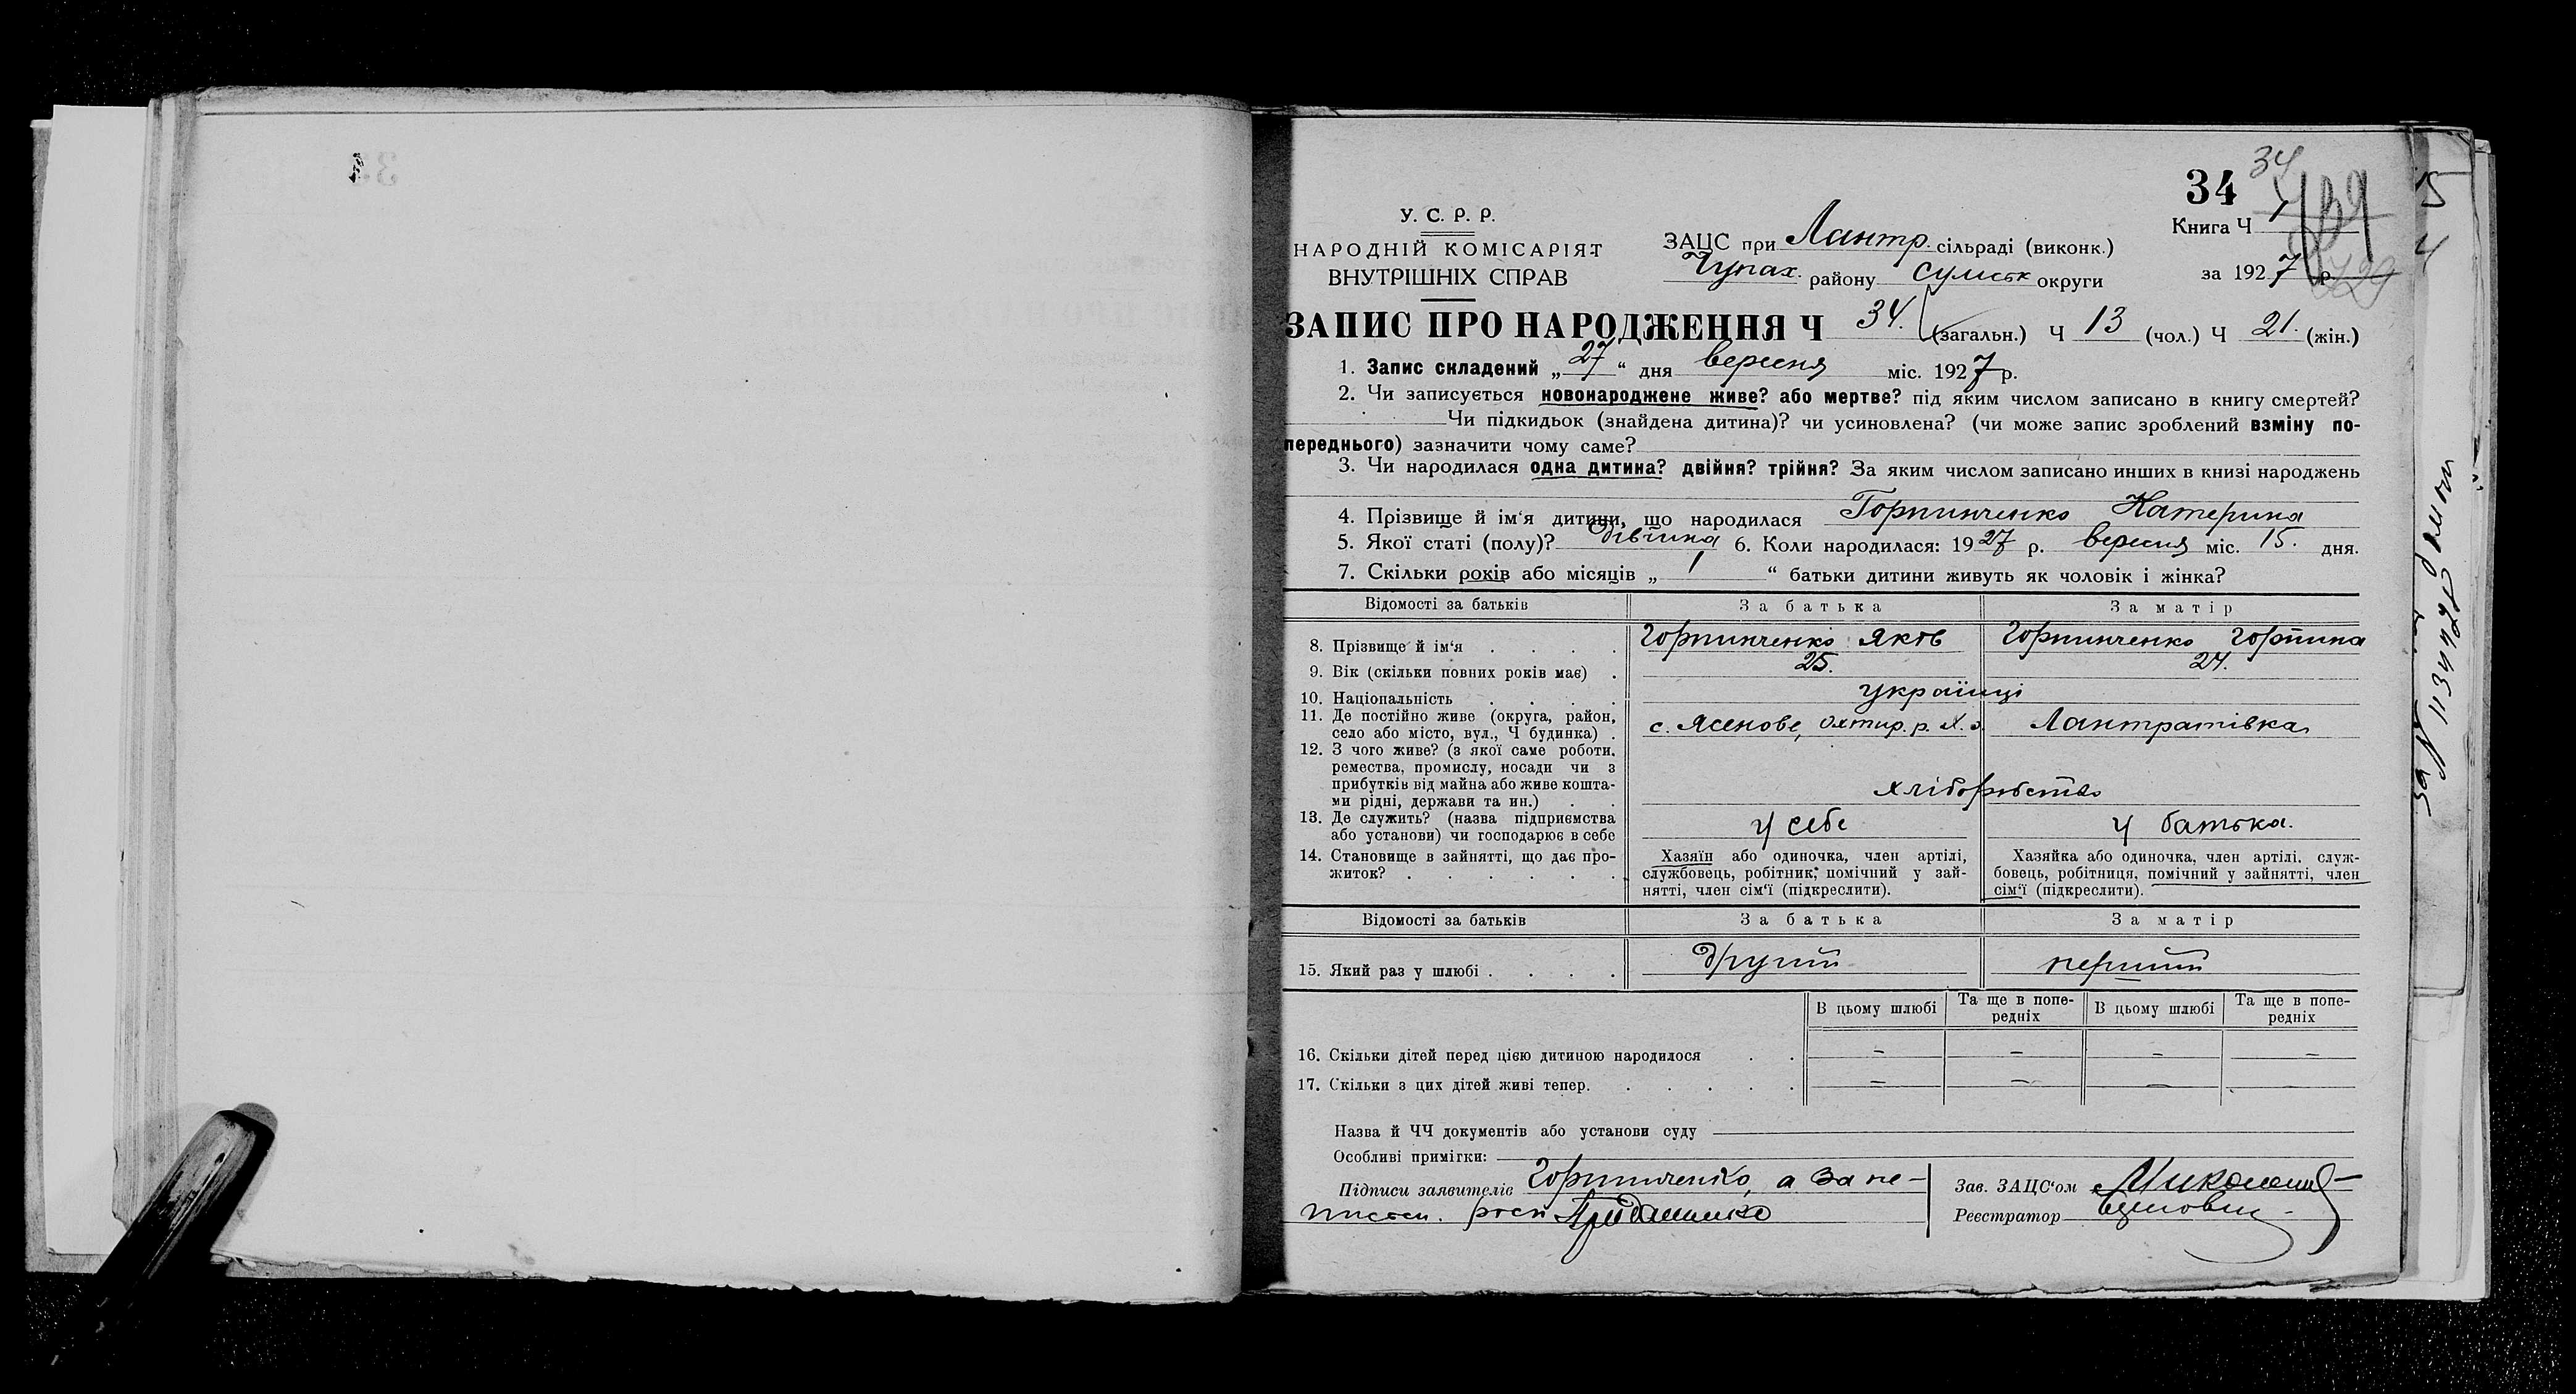 34
34
У. С. Р. Р.
НАРОДНІЙ КОМІСАРІЯТ
ВНУТРІШНІХ СПРАВ
ЗАЦС при Лантр. сільраді (виконк.)
Чупах. району сумськ округи
Книга Ч 1
за 1927 р.
ЗАПИС ПРО НАРОДЖЕННЯ Ч 34. (загальн.) Ч 13 (чол.) Ч 21. (жін.)
1. Запис складений „27“ дня вересня міс. 1927 р.
2. Чи записується новонароджене живе? або мертве? під яким числом записано в книгу смертей?
Чи підкидьок (знайдена дитина)? чи усиновлена? (чи може запис зроблений взміну по-
переднього) зазначити чому саме?
3. Чи народилася одна дитина? двійня? трійня? За яким числом записано инших в книзі народжень
4. Прізвище й ім'я дитини, що народилася Горпинченко Катерина
5. Якої статі (полу)? дівчина 6. Коли народилася: 1927 р. вересня міс. 15. дня.
7. Скільки років або місяців „ 1 “ батьки дитини живуть як чоловік і жінка?
Відомості за батьків За батька За матір
8. Прізвище й ім'я Горпинченко Яков Горпинченко Горпина
9. Вік (скільки повних років має) 25. 24.
10. Національність українці
11. Де постійно живе (округа, район,
село або місто, вул., Ч будинка) с. Ясенове, охтир. р. Х. о. Лантратівка
12. З чого живе? (з якої саме роботи,
ремества, промислу, посади чи з
прибутків від майна або живе кошта-
ми рідні, держави та ин.) хліборобство
13. Де служить? (назва підприємства
або установи) чи господарює в себе у себе у батька.
14. Становище в зайнятті, що дає про-
житок?
Хазяїн або одиночка, член артілі,
службовець, робітник, помічний у зай-
нятті, член сім'ї (підкреслити).
Хазяйка або одиночка, член артілі, служ-
бовець, робітниця, помічний у зайнятті, член
сім'ї (підкреслити).
Відомості за батьків За батька За матір
15. Який раз у шлюбі другий перший
В цьому шлюбі Та ще в попе-
редніх В цьому шлюбі Та ще в попе-
редніх
16. Скільки дітей перед цією дитиною народилося – – – –
17. Скільки з цих дітей живі тепер. – – – –
Назва й ЧЧ документів або установи суду
Особливі примітки:
Підписи заявителів Горпинченко, а за не-
Зав. ЗАЦС'ом
Реєстратор